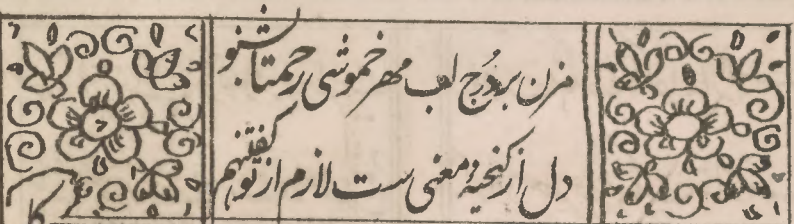 مزن بر دُرج لب مهر خموشی رحمتا بشنو
دل ار گنجینۂ معنی ست لازم از تو گفتنهم